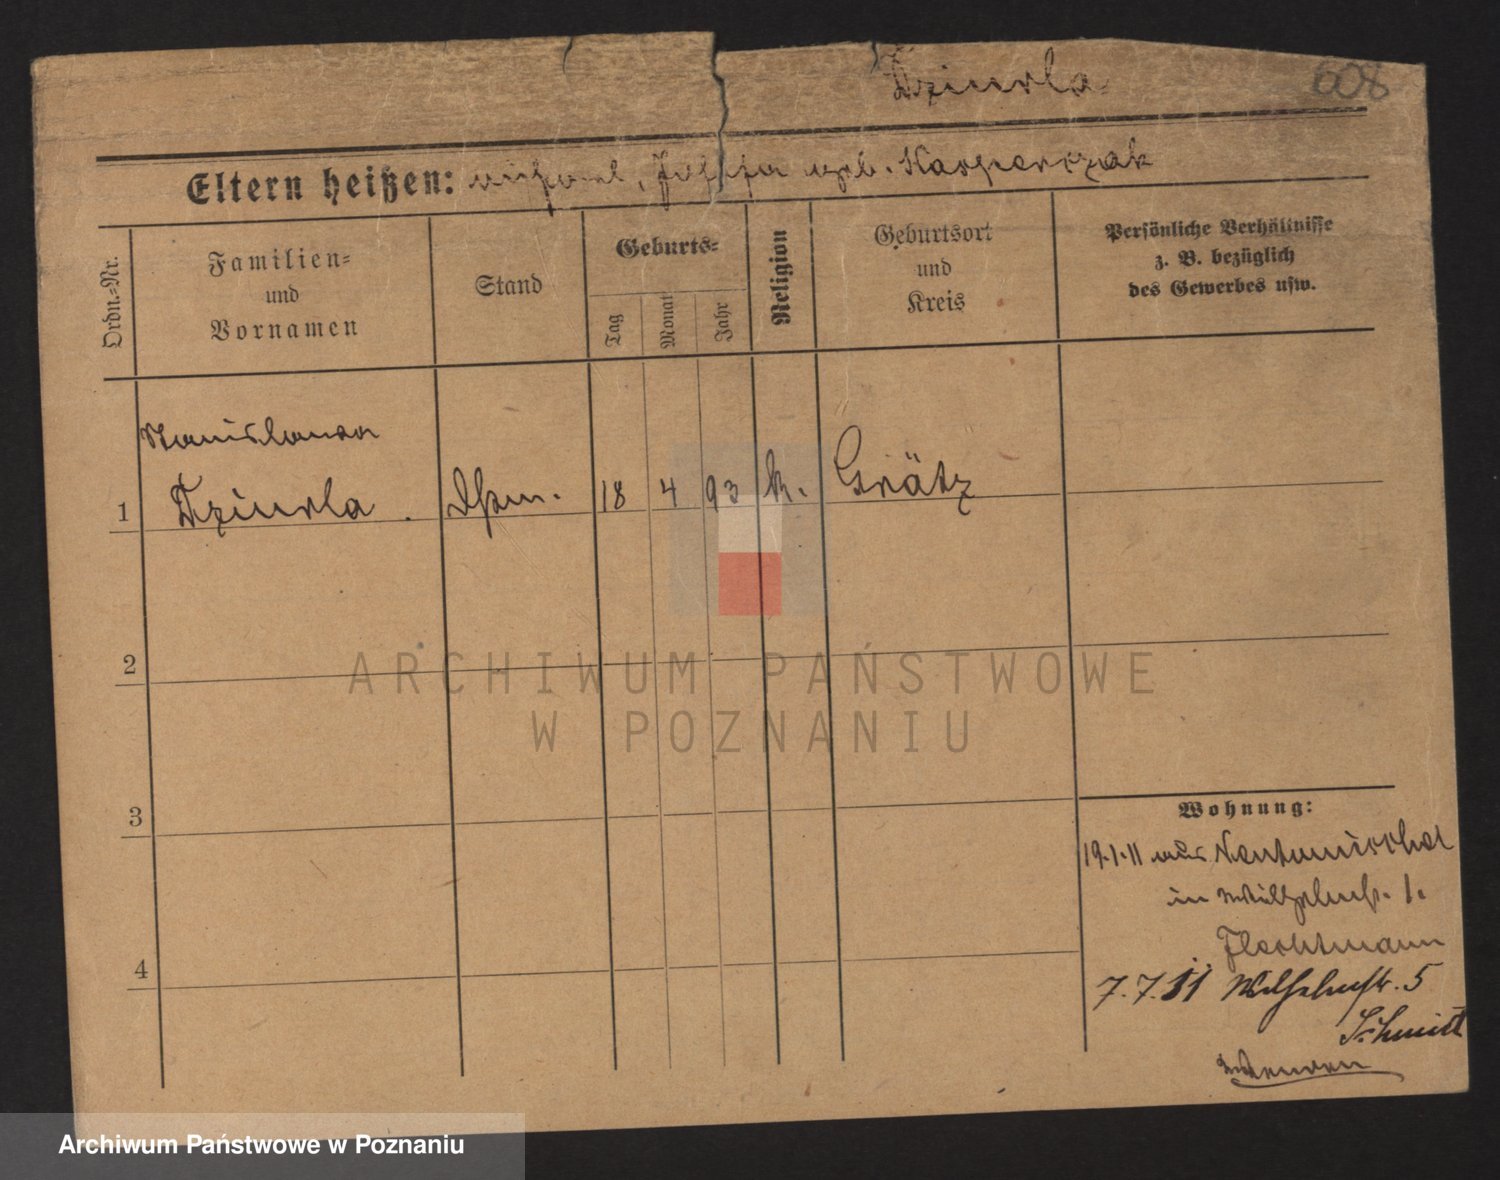 608
Dziurla
Eltern heißen: Michael, Josefa geb. Kasperczak
Ordn.-Nr.
Familien-
und
Vornamen
Stand
Geburts-
Tag
Monat
Jahr
Religion
Geburtsort
und
Kreis
Persönliche Verhältnisse
z. B. bezüglich
des Gewerbes usw.
Stanislawa
1 Dziurla. 18 4 93 k. Grätz
2
3
4
Wohnung:
19.1.11 aus Neutomischel
in Wilhelmstr. 1.
Flechtmann
7.7.11 Wilhelmstr. 5
Schmidt
Wenden
ARCHIWUM PAŃSTWOWE
W POZNANIU
Archiwum Państwowe w Poznaniu